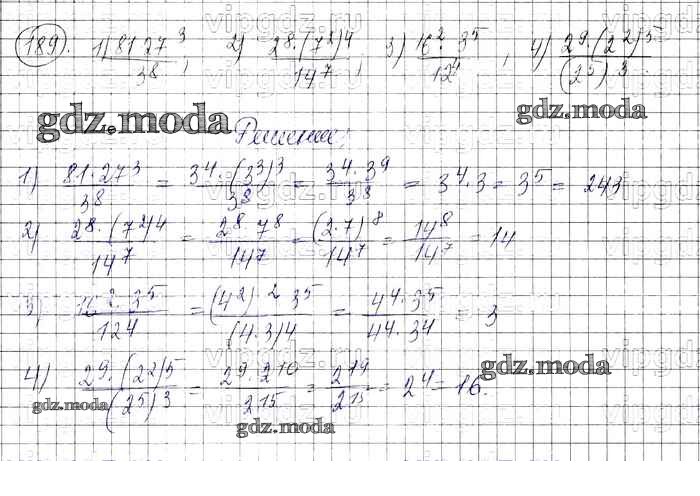 189. 1) 81·27³/3⁸, 2) 2⁸·(7²)4/14⁷, 3) 16²·3⁵/12⁴, 4) 2⁹·(2²)⁵/(2⁵)³
gdz.moda
gdz.moda
Решение:
1) 81·27³/3⁸ = 3⁴·(3³)³/3⁸ = 3⁴·3⁹/3⁸ = 3⁴·3 = 3⁵ = 243
2) 2⁸·(7²)4/14⁷ = 2⁸·7⁸/14⁷ = (2·7)⁸/14⁷ = 14⁸/14⁷ = 14
3) 16²·3⁵/124 = (4²)²·3⁵/(4·3)4 = 4⁴·3⁵/44·34 = 3
gdz.moda
4) 2⁹·(22)5/(2⁵)3 = 2⁹·2¹⁰/2¹⁵ = 2¹⁹/2¹⁵ = 2⁴ = 16.
gdz.moda
gdz.moda
vipgdz.ru